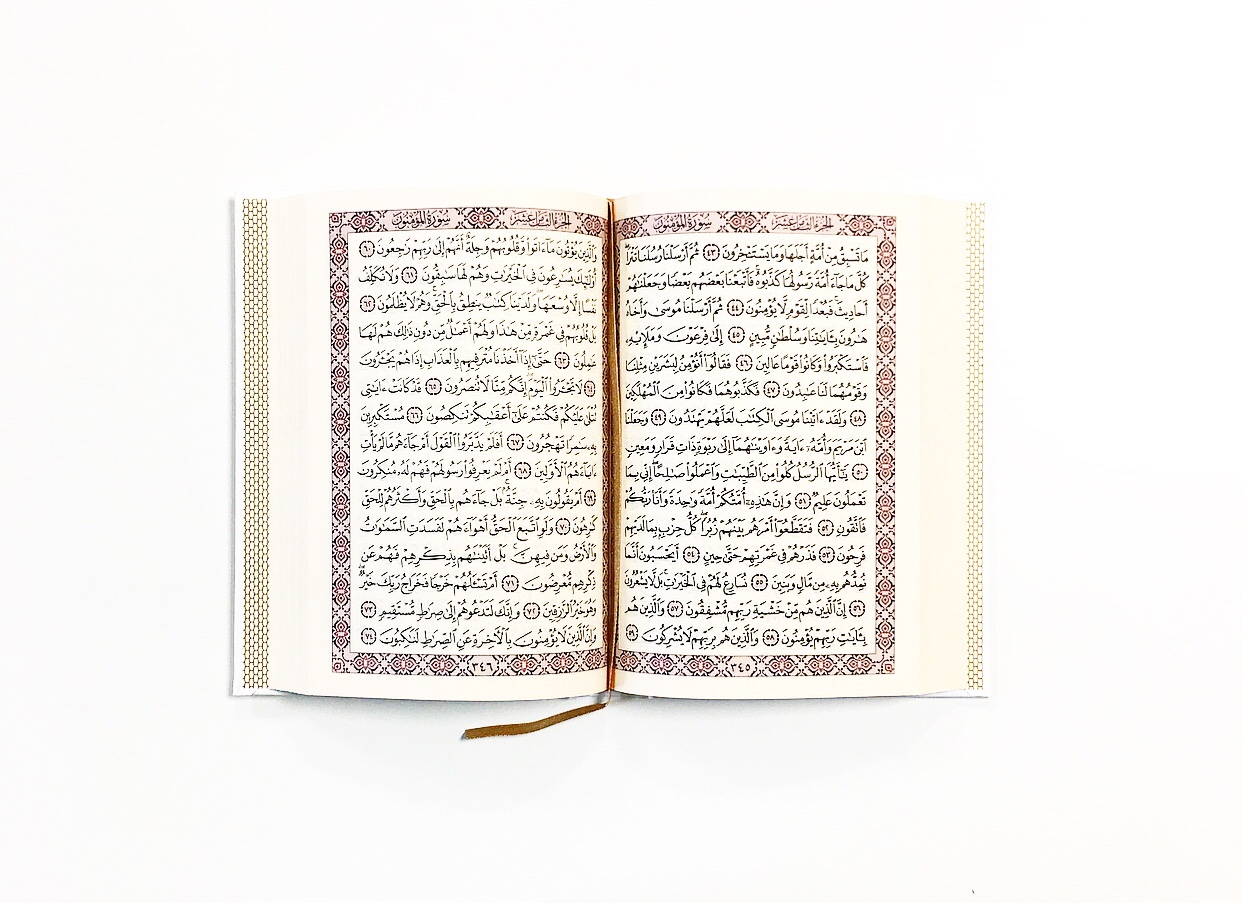 الجزء الثامن عشر سورة المؤمنون
مَا تَسْبِقُ مِنْ أُمَّةٍ أَجَلَهَا وَمَا يَسْتَـْٔخِرُونَ ٤٣ ثُمَّ أَرْسَلْنَا رُسُلَنَا تَتْرَا
كُلَّ مَا جَآءَ أُمَّةً رَّسُولُهَا كَذَّبُوهُ فَأَتْبَعْنَا بَعْضَهُم بَعْضًا وَجَعَلْنَٰهُمْ
أَحَادِيثَ فَبُعْدًا لِّقَوْمٍ لَّا يُؤْمِنُونَ ٤٤ ثُمَّ أَرْسَلْنَا مُوسَىٰ وَأَخَاهُ
هَٰرُونَ بِـَٔايَٰتِنَا وَسُلْطَٰنٍ مُّبِينٍ ٤٥ إِلَىٰ فِرْعَوْنَ وَمَلَإِيْهِۦ
فَٱسْتَكْبَرُوا۟ وَكَانُوا۟ قَوْمًا عَالِينَ ٤٦ فَقَالُوٓا۟ أَنُؤْمِنُ لِبَشَرَيْنِ مِثْلِنَا
وَقَوْمُهُمَا لَنَا عَٰبِدُونَ ٤٧ فَكَذَّبُوهُمَا فَكَانُوا۟ مِنَ ٱلْمُهْلَكِينَ
٤٨ وَلَقَدْ ءَاتَيْنَا مُوسَى ٱلْكِتَٰبَ لَعَلَّهُمْ يَهْتَدُونَ ٤٩ وَجَعَلْنَا
ٱبْنَ مَرْيَمَ وَأُمَّهُۥٓ ءَايَةً وَءَاوَيْنَٰهُمَآ إِلَىٰ رَبْوَةٍ ذَاتِ قَرَارٍ وَمَعِينٍ
٥٠ يَٰٓأَيُّهَا ٱلرُّسُلُ كُلُوا۟ مِنَ ٱلطَّيِّبَٰتِ وَٱعْمَلُوا۟ صَٰلِحًا إِنِّى بِمَا
تَعْمَلُونَ عَلِيمٌ ٥١ وَإِنَّ هَٰذِهِۦٓ أُمَّتُكُمْ أُمَّةً وَٰحِدَةً وَأَنَا۠ رَبُّكُمْ
فَٱتَّقُونِ ٥٢ فَتَقَطَّعُوٓا۟ أَمْرَهُم بَيْنَهُمْ زُبُرًا كُلُّ حِزْبٍۭ بِمَا لَدَيْهِمْ
فَرِحُونَ ٥٣ فَذَرْهُمْ فِى غَمْرَتِهِمْ حَتَّىٰ حِينٍ ٥٤ أَيَحْسَبُونَ أَنَّمَا
نُمِدُّهُم بِهِۦ مِن مَّالٍ وَبَنِينَ ٥٥ نُسَارِعُ لَهُمْ فِى ٱلْخَيْرَٰتِ بَل لَّا يَشْعُرُونَ
٥٦ إِنَّ ٱلَّذِينَ هُم مِّنْ خَشْيَةِ رَبِّهِم مُّشْفِقُونَ ٥٧ وَٱلَّذِينَ هُم
بِـَٔايَٰتِ رَبِّهِمْ يُؤْمِنُونَ ٥٨ وَٱلَّذِينَ هُم بِرَبِّهِمْ لَا يُشْرِكُونَ ٥٩
٣٤٥
الجزء الثامن عشر سورة المؤمنون
وَٱلَّذِينَ يُؤْتُونَ مَآ ءَاتَوا۟ وَّقُلُوبُهُمْ وَجِلَةٌ أَنَّهُمْ إِلَىٰ رَبِّهِمْ رَٰجِعُونَ ٦٠
أُو۟لَٰٓئِكَ يُسَٰرِعُونَ فِى ٱلْخَيْرَٰتِ وَهُمْ لَهَا سَٰبِقُونَ ٦١ وَلَا نُكَلِّفُ
نَفْسًا إِلَّا وُسْعَهَا وَلَدَيْنَا كِتَٰبٌ يَنطِقُ بِٱلْحَقِّ وَهُمْ لَا يُظْلَمُونَ ٦٢
بَلْ قُلُوبُهُمْ فِى غَمْرَةٍ مِّنْ هَٰذَا وَلَهُمْ أَعْمَٰلٌ مِّن دُونِ ذَٰلِكَ هُمْ لَهَا
عَٰمِلُونَ ٦٣ حَتَّىٰٓ إِذَآ أَخَذْنَا مُتْرَفِيهِم بِٱلْعَذَابِ إِذَا هُمْ يَجْـَٔرُونَ
٦٤ لَا تَجْـَٔرُوا۟ ٱلْيَوْمَ إِنَّكُم مِّنَّا لَا تُنصَرُونَ ٦٥ قَدْ كَانَتْ ءَايَٰتِى
تُتْلَىٰ عَلَيْكُمْ فَكُنتُمْ عَلَىٰٓ أَعْقَٰبِكُمْ تَنكِصُونَ ٦٦ مُسْتَكْبِرِينَ
بِهِۦ سَٰمِرًا تَهْجُرُونَ ٦٧ أَفَلَمْ يَدَّبَّرُوا۟ ٱلْقَوْلَ أَمْ جَآءَهُم مَّا لَمْ يَأْتِ
ءَابَآءَهُمُ ٱلْأَوَّلِينَ ٦٨ أَمْ لَمْ يَعْرِفُوا۟ رَسُولَهُمْ فَهُمْ لَهُۥ مُنكِرُونَ
٦٩ أَمْ يَقُولُونَ بِهِۦ جِنَّةٌۢ بَلْ جَآءَهُم بِٱلْحَقِّ وَأَكْثَرُهُمْ لِلْحَقِّ
كَٰرِهُونَ ٧٠ وَلَوِ ٱتَّبَعَ ٱلْحَقُّ أَهْوَآءَهُمْ لَفَسَدَتِ ٱلسَّمَٰوَٰتُ
وَٱلْأَرْضُ وَمَن فِيهِنَّ بَلْ أَتَيْنَٰهُم بِذِكْرِهِمْ فَهُمْ عَن
ذِكْرِهِم مُّعْرِضُونَ ٧١ أَمْ تَسْـَٔلُهُمْ خَرْجًا فَخَرَاجُ رَبِّكَ خَيْرٌ
وَهُوَ خَيْرُ ٱلرَّٰزِقِينَ ٧٢ وَإِنَّكَ لَتَدْعُوهُمْ إِلَىٰ صِرَٰطٍ مُّسْتَقِيمٍ ٧٣
وَإِنَّ ٱلَّذِينَ لَا يُؤْمِنُونَ بِٱلْـَٔاخِرَةِ عَنِ ٱلصِّرَٰطِ لَنَٰكِبُونَ ٧٤
٣٤٦